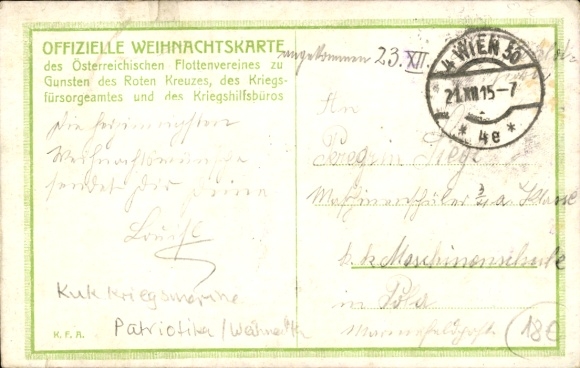 OFFIZIELLE WEIHNACHTSKARTE
des Österreichischen Flottenvereines zu
Gunsten des Roten Kreuzes, des Kriegs-
fürsorgeamtes und des Kriegshilfsbüros
angekommen 23. XII.
4 WIEN 50
21.XII.15-7
* 4e *
Die herzinnigsten
Weihnachtswünsche
sendet Dir Deine
Louise
An
Peregrin
Maschinenschüler a. Klasse
k. k. Maschinenschule
in Pola
Marinefeldpost
KuK Kriegsmarine
Patriotika / Weihnacht
18€
K. F. A.